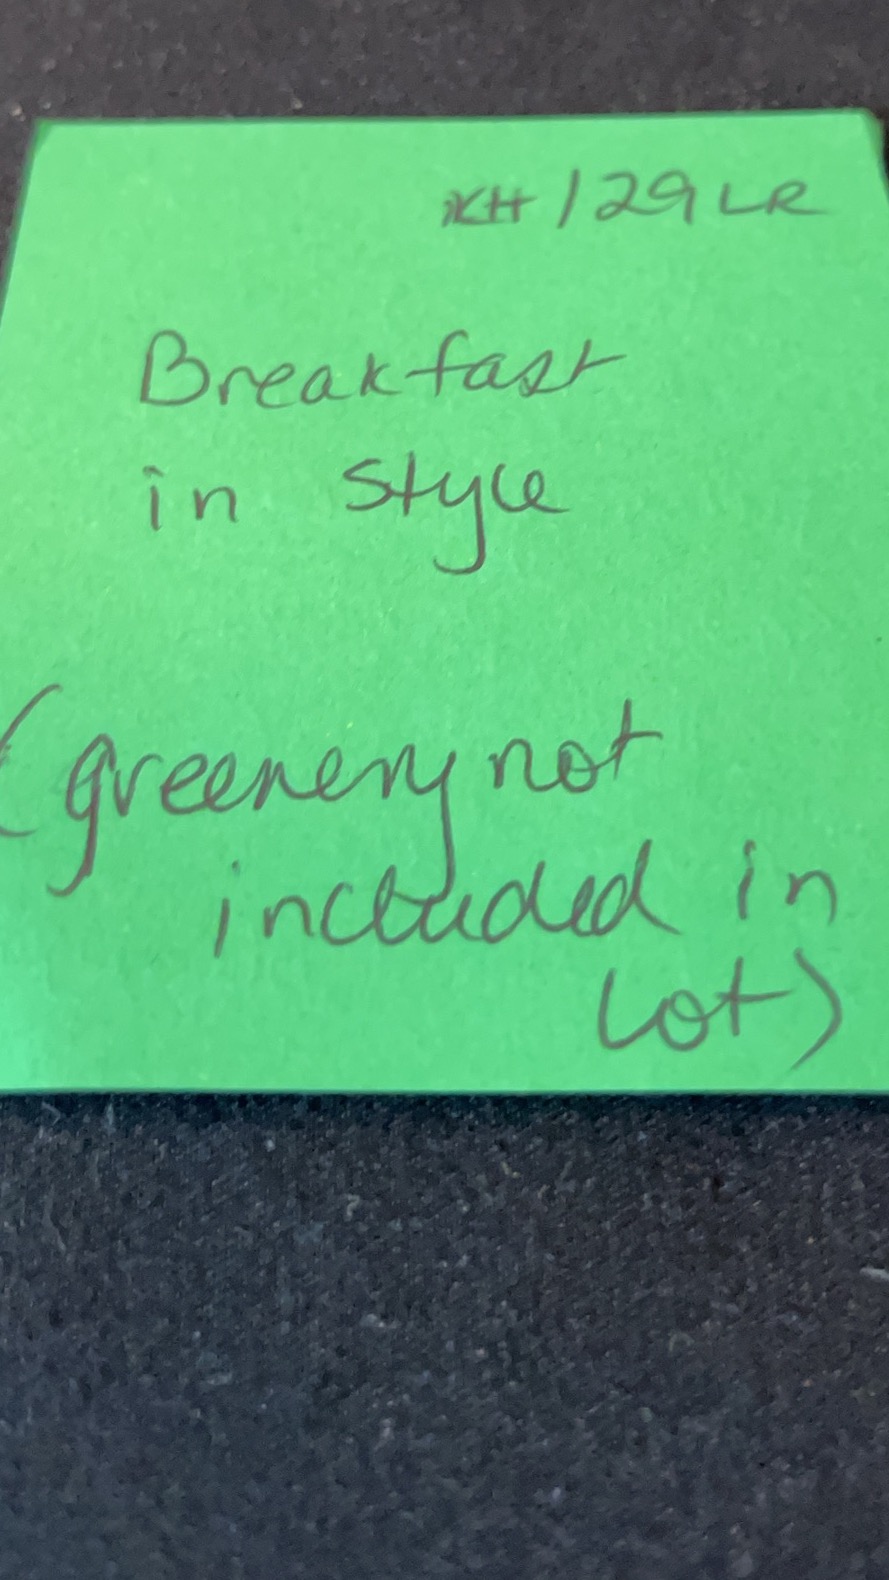 KH 129 LR
Breakfast
in style
(greenery not
included in
lot)